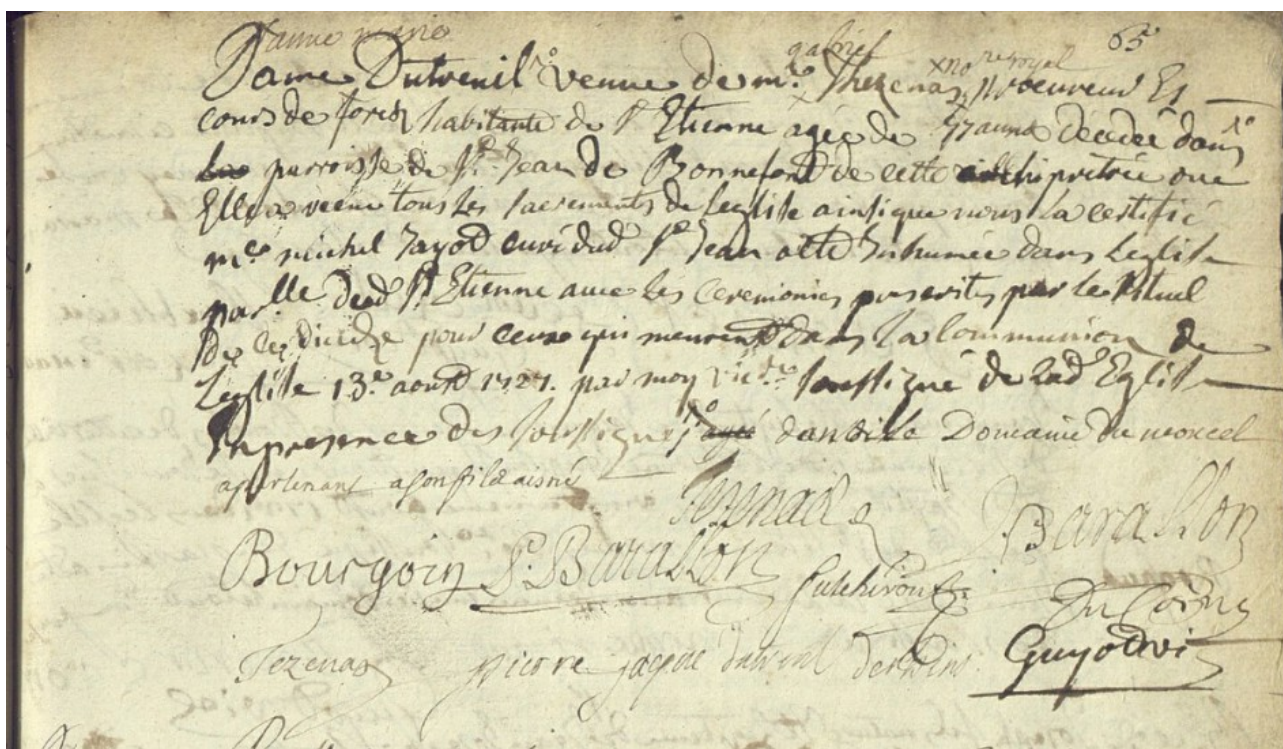 anne marie
gabriel
65
xno.re royal
Dame Dutreuil veuve de m.e Thezenas procureur Es
cours de forez habitante de S.t Etienne agée de 77 anns décédée dans
la parroisse de S.t Jean de Bonnefond de cette archipretrée ou
Elle a receue tous les sacrements de Leglise ainsi que nous la certifié
m.re michel Jayod curé dud S.t Jean a été Inhumée dans Leglise
par.lle dud S.t Etienne avec les ceremonies prescrites par le Rituel
de ce dioceze pour ceux qui meurent dans la Communion de
Leglise 13.e aoust 1727. par moy soussigné de lad Eglise
En presence des soussignés dans le Domaine du
apartenant a son fils aisné
Tezenas Barallon
Bourgoin P. Barallon
Tezenas pierre jacque dutreuil Guyod vi